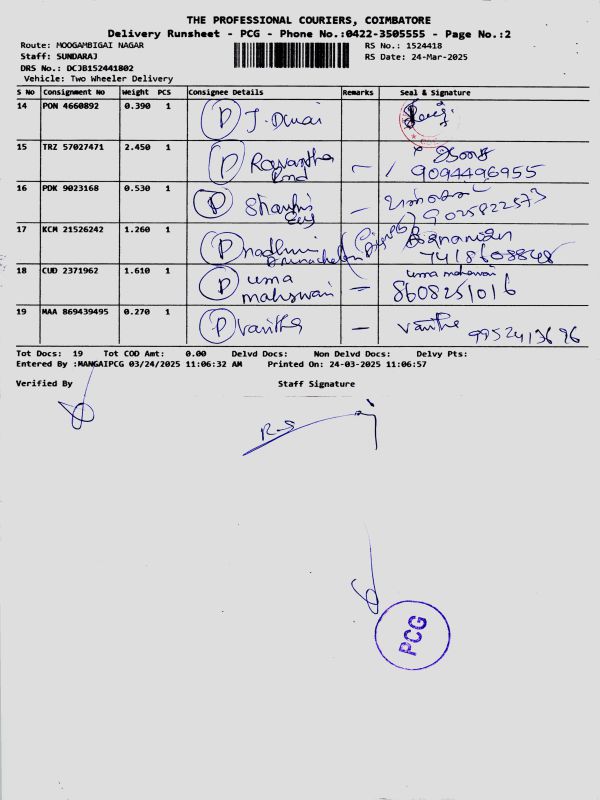 THE PROFESSIONAL COURIERS, COIMBATORE
Delivery Runsheet - PCG - Phone No.:0422-3505555 - Page No.:2
Route: MOOGAMBIGAI NAGAR RS No.: 1524418
Staff: SUNDARAJ RS Date: 24-Mar-2025
DRS No.: DCJB152441802
Vehicle: Two Wheeler Delivery
S No Consignment No Weight PCS Consignee Details Remarks Seal & Signature
14 PON 4660892 0.390 1 (D) J. Durai
15 TRZ 57027471 2.450 1 (D) — 9094496955
16 PDK 9023168 0.530 1 (D) — 9025822573
17 KCM 21526242 1.260 1 (D) 7418608848
18 CUD 2371962 1.610 1 (D) uma maheswari — uma maheswari 8608251016
19 MAA 869439495 0.270 1 (D) Vanitha — Vanitha 9952413696
Tot Docs: 19 Tot COD Amt: 0.00 Delvd Docs: Non Delvd Docs: Delvy Pts:
Entered By :MANGAIPCG 03/24/2025 11:06:32 AM Printed On: 24-03-2025 11:06:57
Verified By Staff Signature
PCG